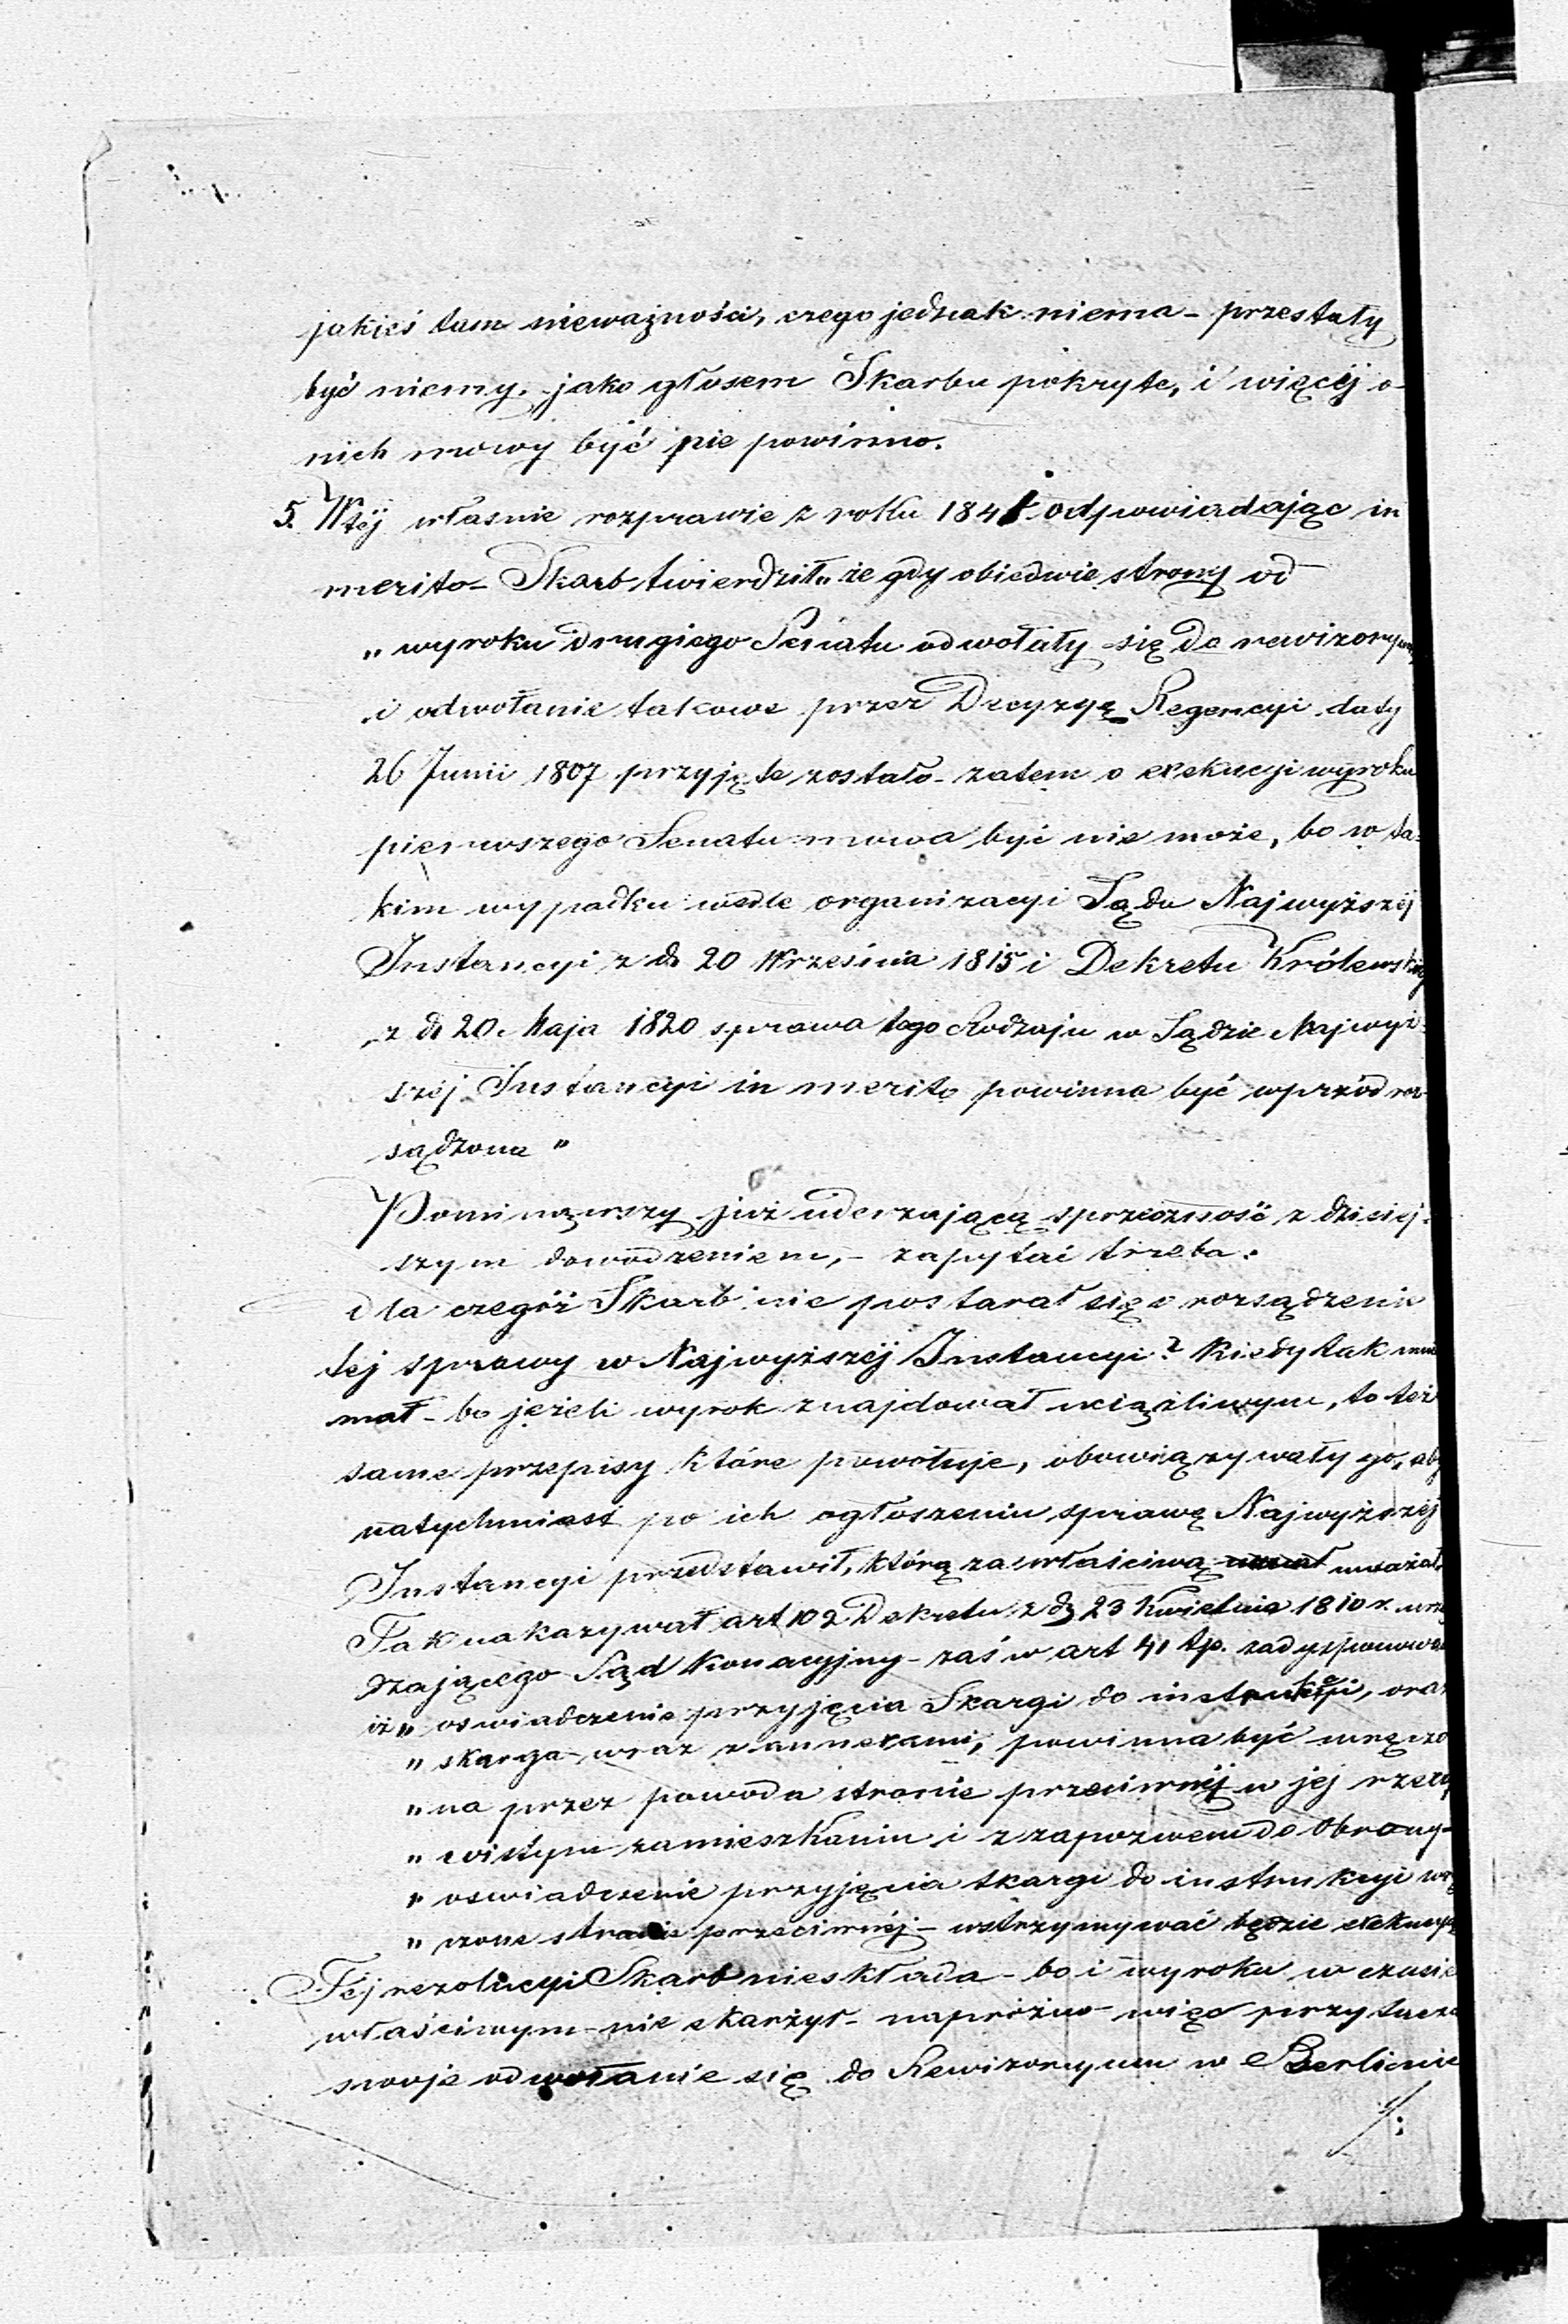 jakieś tam nieważności, czego jednak niema - przestały
być niemy, jako głosem Skarbu pokryte, i więcéj o
nich mowy być nie powinno.
5. W téj właśnie rozprawie z roku 1841 odpowiadając in
merito - Skarb twierdził „że gdy obiedwie strony od
„wyroku drugiego Senatu odwołały się do
i odwołanie takowe przez Decyzyę Regencyi daty
26 Junii 1807 przyjęte zostało - zatem o exekucji wyroku
pierwszego Senatu mowa być nie może, bo w ta-
kim wypadku wedle organizacyi Sądu Najwyższéj
Instancyi z d. 20 Września 1815 i Dekretu
z d. 20 Maja 1820 sprawa tego Rodzaju w Sądzie Najwyż-
széj Instancyi in merito powinna być wprzód roz-
sądzona"
Pominąwszy już uderzającą sprzeczność z dzisiej-
szym dowodzeniem, - zapytać trzeba.
dla czegóż Skarb nie postarał się o rozsądzenie
téj sprawy w Najwyższéj Instancyi? Kiedy tak mnie-
mał - bo jeżeli wyrok znajdował uciążliwym, to też
same przepisy które powołuje, obowiązywały go, aby
natychmiast po ich ogłoszeniu sprawę Najwyższéj
Instancyi przedstawił, którą za właściwą uważał
Tak nakazywał art 102 Dekretu z d. 23 Kwietnia 1810 r.
dzającego Sąd Kasacyjny - zaś w art 41 tp.
iż „oswiadczenie przyjęcia Skargi do instrukcyi, oraz
„skarga wraz z annexami, powinna być wręczo
„na przez powoda stronie przeciwnéj w jej rzeczy
„wistym zamieszkaniu i z zapozwem do Obrony -
„oswiadczenie przyjęcia skargi do instrukcyi wrę
„czone stronie przeciwnéj - wstrzymywać będzie exekucyę
Téj rezolucyi Skarb nieskłada - bo i wyroku w czasie
właściwym nie skarżył - napróżno więc przytacza
swoje odwołanie się do Rewizoryum w Berlinie